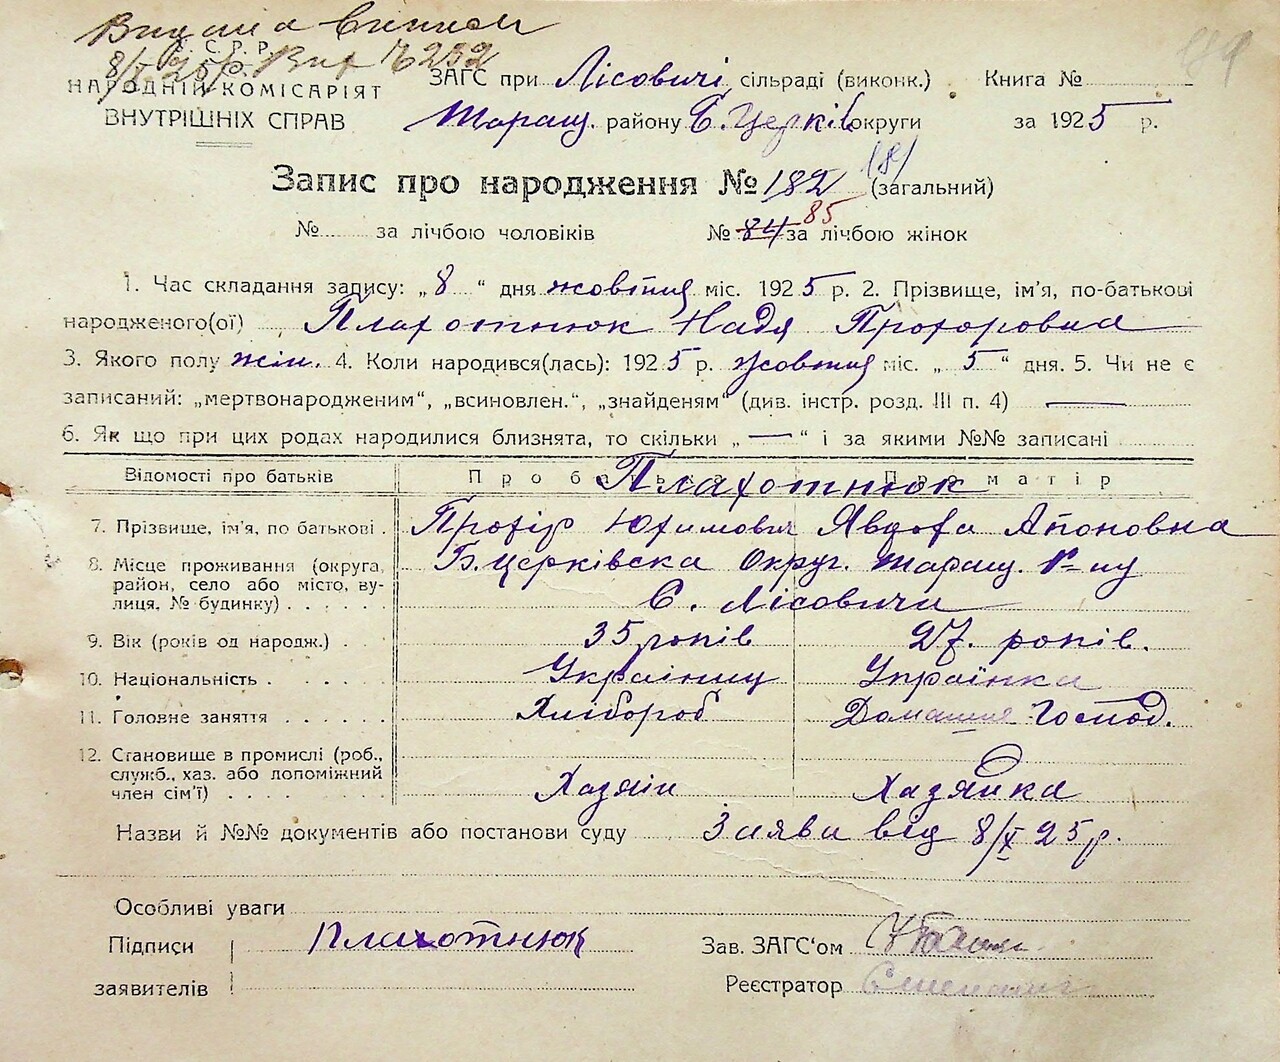 Видана
У. С. Р. Р.
8/X 25 р. Вип № 252
НАРОДНІЙ КОМІСАРІЯТ
ВНУТРІШНІХ СПРАВ
ЗАГС при Лісовичі сільраді (виконк.) Книга №
Таращ. району Б. Церків округи за 1925 р.
Запис про народження № 182 (загальний)
№ за лічбою чоловіків № 84 85 за лічбою жінок
1. Час складання запису: „8“ дня жовтня міс. 1925 р. 2. Прізвище, ім'я, по-батькові
народженого(ої) Плахотнюк Надя Прохоровна
3. Якого полу жін. 4. Коли народився(лась): 1925 р. жовтня міс. „5“ дня. 5. Чи не є
записаний: „мертвонародженим“, „всиновлен.“, „знайденям“ (див. інстр. розд. III п. 4) —
6. Як що при цих родах народилися близнята, то скільки „—“ і за якими №№ записані
Відомості про батьків Про батька Про матір
Плахотнюк
7. Прізвище, ім'я, по батькові . Прохір Юхимович Явдоха Апоновна
8. Місце проживання (округа, район, село або місто, вулиця, № будинку) . . . . . . Б. церківска Округ. Таращ. р-ну
С. Лісовичи
9. Вік (років од народж.) . 35 років 27. років.
10. Національність . . . . . Українец Українка
11. Головне заняття . . . . . . Хлібороб Домашне Господ.
12. Становище в промислі (роб., служб., хаз. або допоміжний член сім'ї) . . . . . . . Хазяїн Хазяйка
Назви й №№ документів або постанови суду Заява від 8/X 25 р.
Особливі уваги
Підписи Плахотнюк Зав. ЗАГС'ом
заявителів Реєстратор